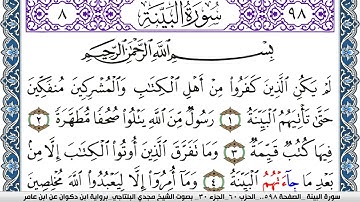 ٩٨ سُورَةُ الْبَيِّنَةِ ٨
بِسْمِ اللَّهِ الرَّحْمَٰنِ الرَّحِيمِ
لَمْ يَكُنِ الَّذِينَ كَفَرُوا مِنْ أَهْلِ الْكِتَابِ وَالْمُشْرِكِينَ مُنْفَكِّينَ
حَتَّى تَأْتِيَهُمُ الْبَيِّنَةُ ١ رَسُولٌ مِنَ اللَّهِ يَتْلُوا صُحُفًا مُطَهَّرَةً ٢
فِيهَا كُتُبٌ قَيِّمَةٌ ٣ وَمَا تَفَرَّقَ الَّذِينَ أُوتُوا الْكِتَابَ إِلَّا مِنْ
بَعْدِ مَا جَاءَتْهُمُ الْبَيِّنَةُ ٤ وَمَا أُمِرُوا إِلَّا لِيَعْبُدُوا اللَّهَ مُخْلِصِينَ
سورة البينة الصفحة ٥٩٨.. الحزب ٦٠ الجزء ٣٠ بصوت الشيخ مجدي البلتاجي . برواية ابن ذكوان عن ابن عامر